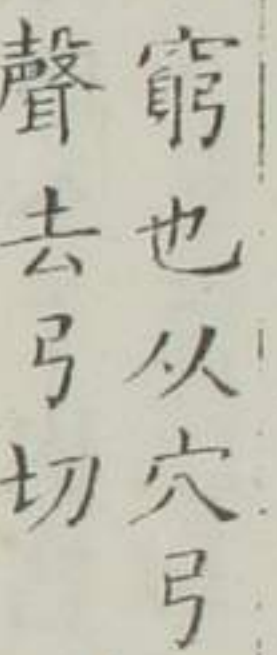 窮也从穴弓
聲去弓切